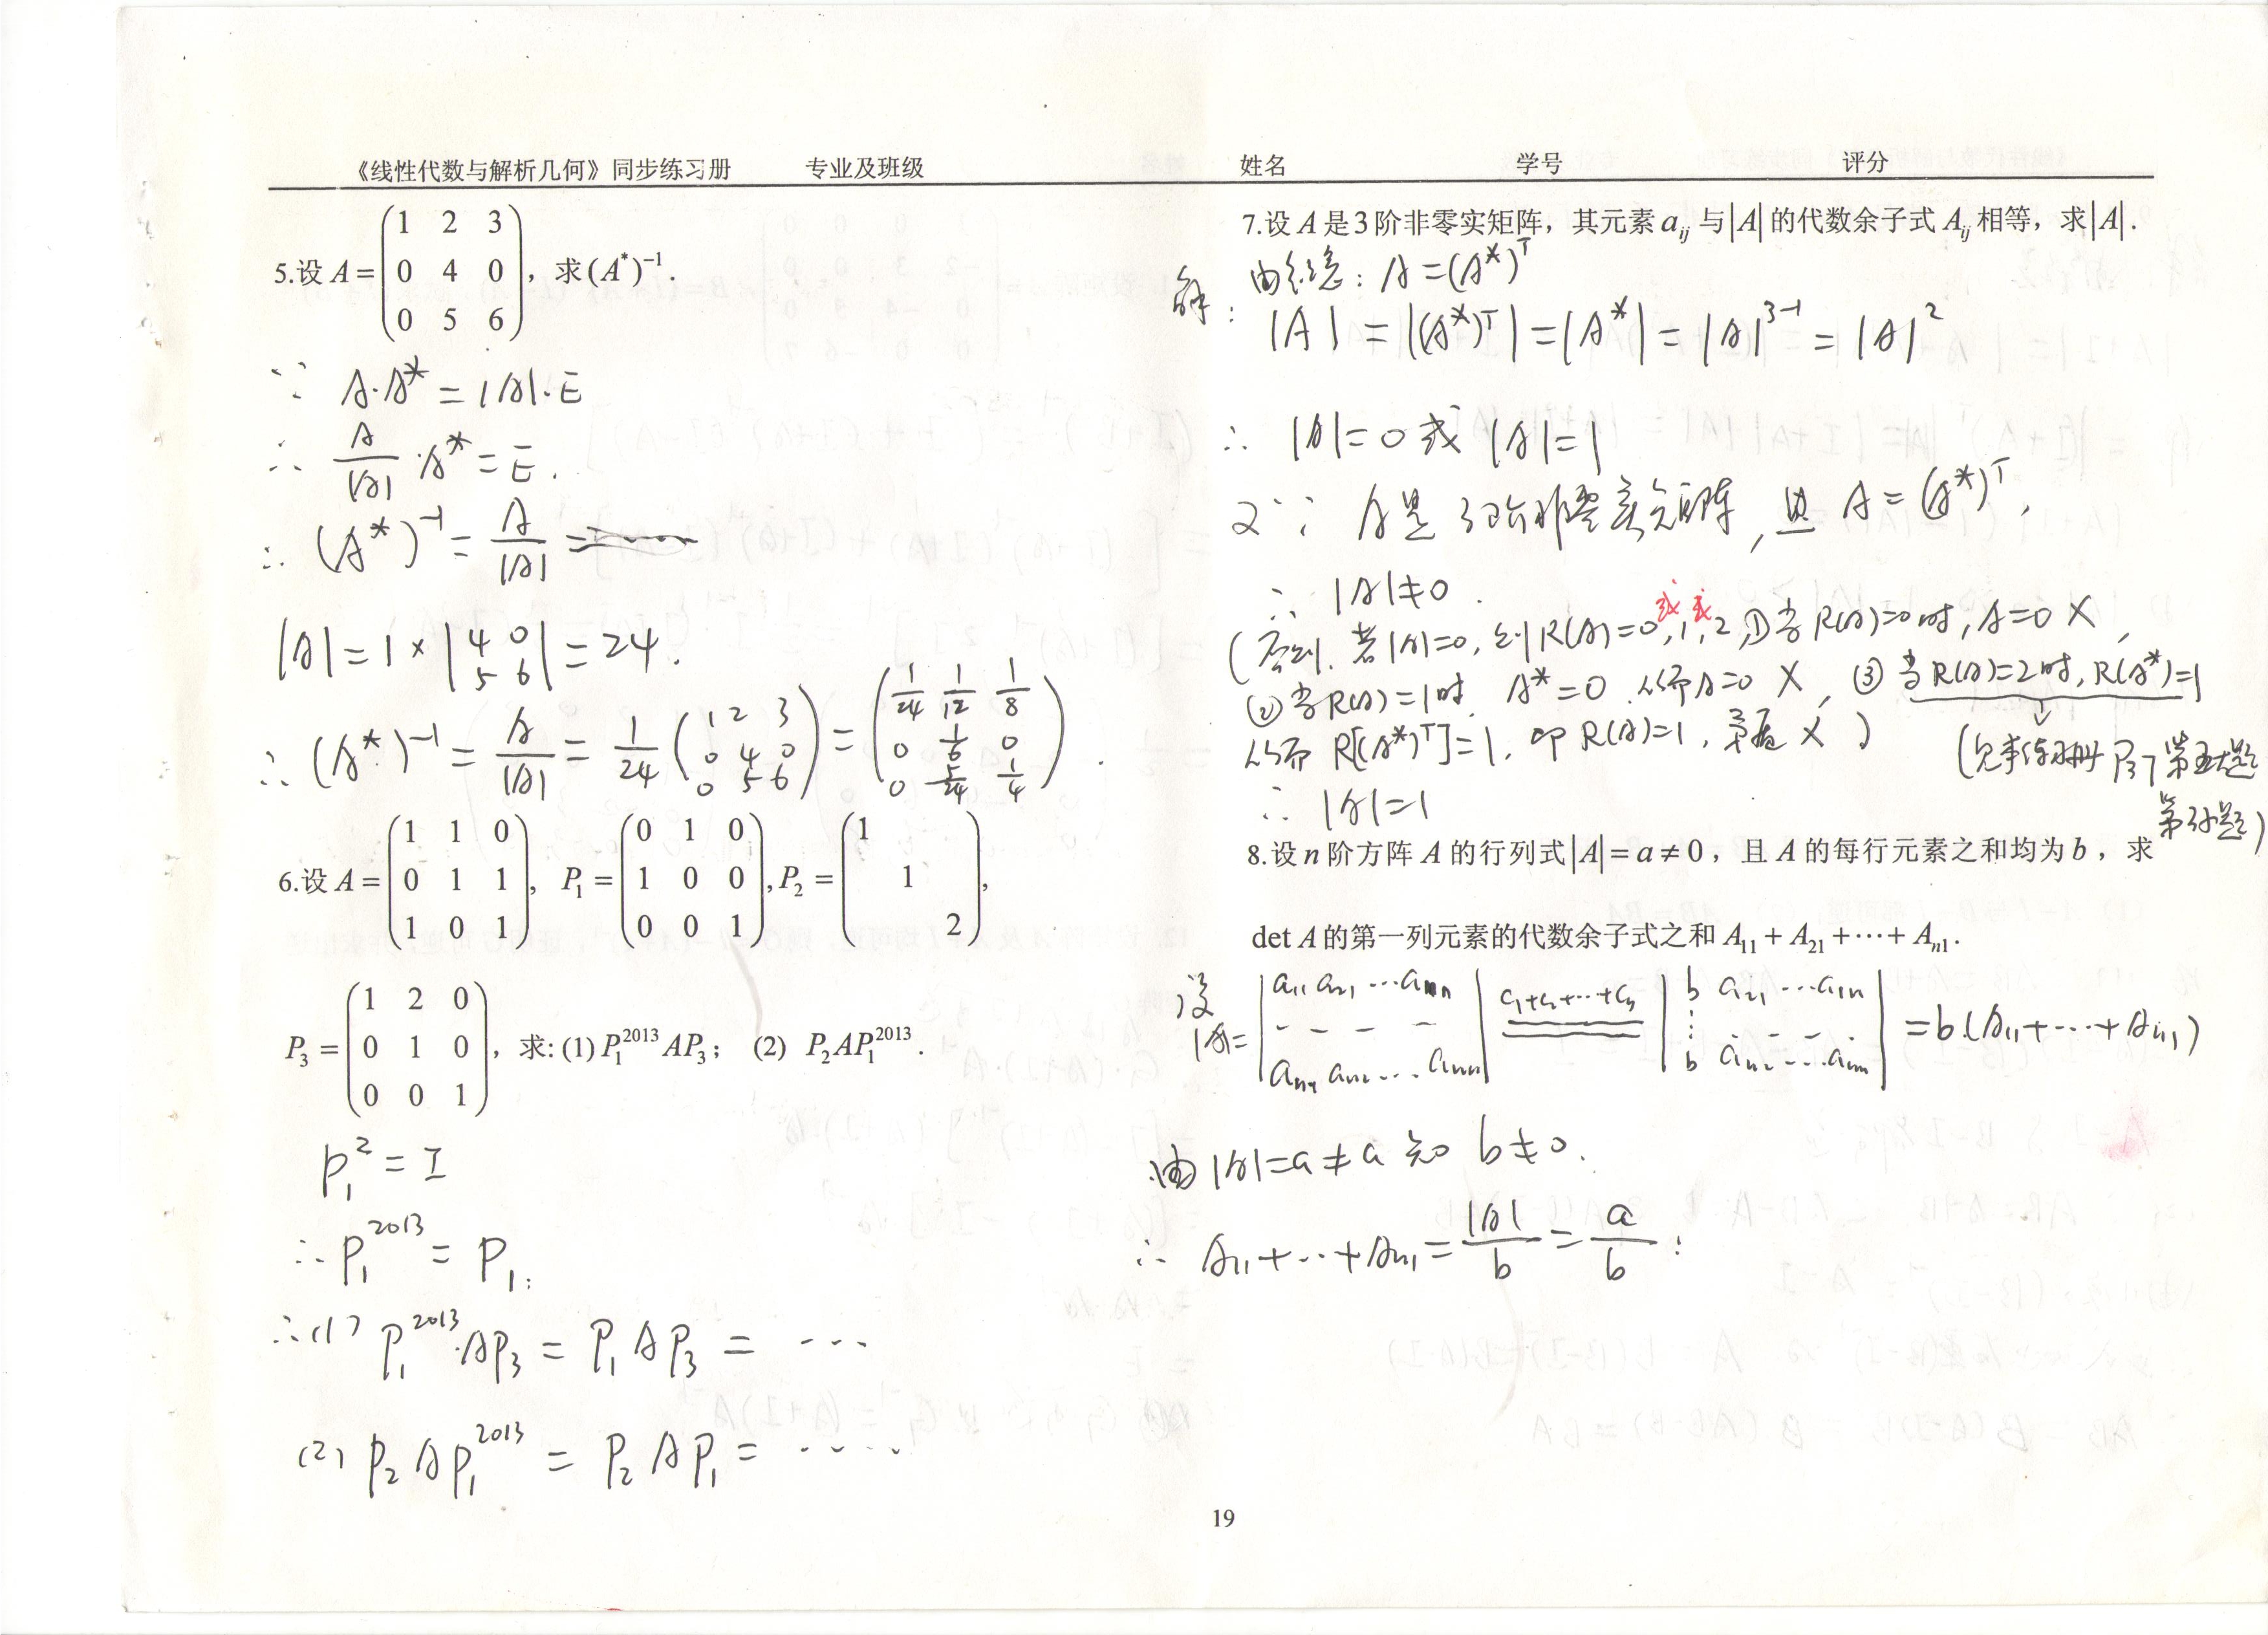 《线性代数与解析几何》同步练习册 专业及班级 姓名 学号 评分
5.设 A = (1 2 3; 0 4 0; 0 5 6), 求(A*)⁻¹.
∵ A·A* = |A|·E
∴ A/|A| · A* = E.
∴ (A*)⁻¹ = A/|A| =
|A| = 1 × |4 0; 5 6| = 24.
∴ (A*)⁻¹ = A/|A| = 1/24 (1 2 3; 0 4 0; 0 5 6) = (1/24 1/12 1/8; 0 1/6 0; 0 5/24 1/4).
6.设 A = (1 1 0; 0 1 1; 1 0 1), P₁ = (0 1 0; 1 0 0; 0 0 1), P₂ = (1; 1; 2),
P₃ = (1 2 0; 0 1 0; 0 0 1), 求: (1) P₁²⁰¹³AP₃; (2) P₂AP₁²⁰¹³.
P₁² = I
∴ P₁²⁰¹³ = P₁;
∴ (1) P₁²⁰¹³·AP₃ = P₁AP₃ = ···
(2) P₂AP₁²⁰¹³ = P₂AP₁ = ····
7.设 A 是3阶非零实矩阵，其元素 aᵢⱼ 与|A|的代数余子式 Aᵢⱼ 相等，求|A|.
解: 由题意: A = (A*)ᵀ
|A| = |(A*)ᵀ| = |A*| = |A|³⁻¹ = |A|²
∴ |A| = 0 或 |A| = 1
又∵ A是3阶非零实矩阵, 且 A = (A*)ᵀ,
∴ |A| ≠ 0.
(否则, 若|A|=0, 则R(A)=0或1或2, ①当R(A)=0时, A=0 ×,
②当R(A)=1时, A*=0 从而A=0 ×, ③当R(A)=2时, R(A*)=1
从而 R[(A*)ᵀ]=1, 即 R(A)=1, 矛盾 ×)
(见本练习册 P37 第五大题
第3小题)
∴ |A| = 1
8.设 n 阶方阵 A 的行列式|A| = a ≠ 0，且 A 的每行元素之和均为 b，求
det A 的第一列元素的代数余子式之和 A₁₁ + A₂₁ + ··· + Aₙ₁.
设 |A| = |a₁₁ a₂₁ ··· aₙₙ; - - - -; aₙ₁ aₙ₂ ··· aₙₙ| c₁+c₂+···+cₙ |b a₂₁ ··· a₁ₙ; ⋮ - - -; b aₙ₂ ··· aₙₙ| = b·(A₁₁+···+Aₙ₁)
由|A|=a≠a 知 b≠0.
∴ A₁₁+···+Aₙ₁ = |A|/b = a/b;
19